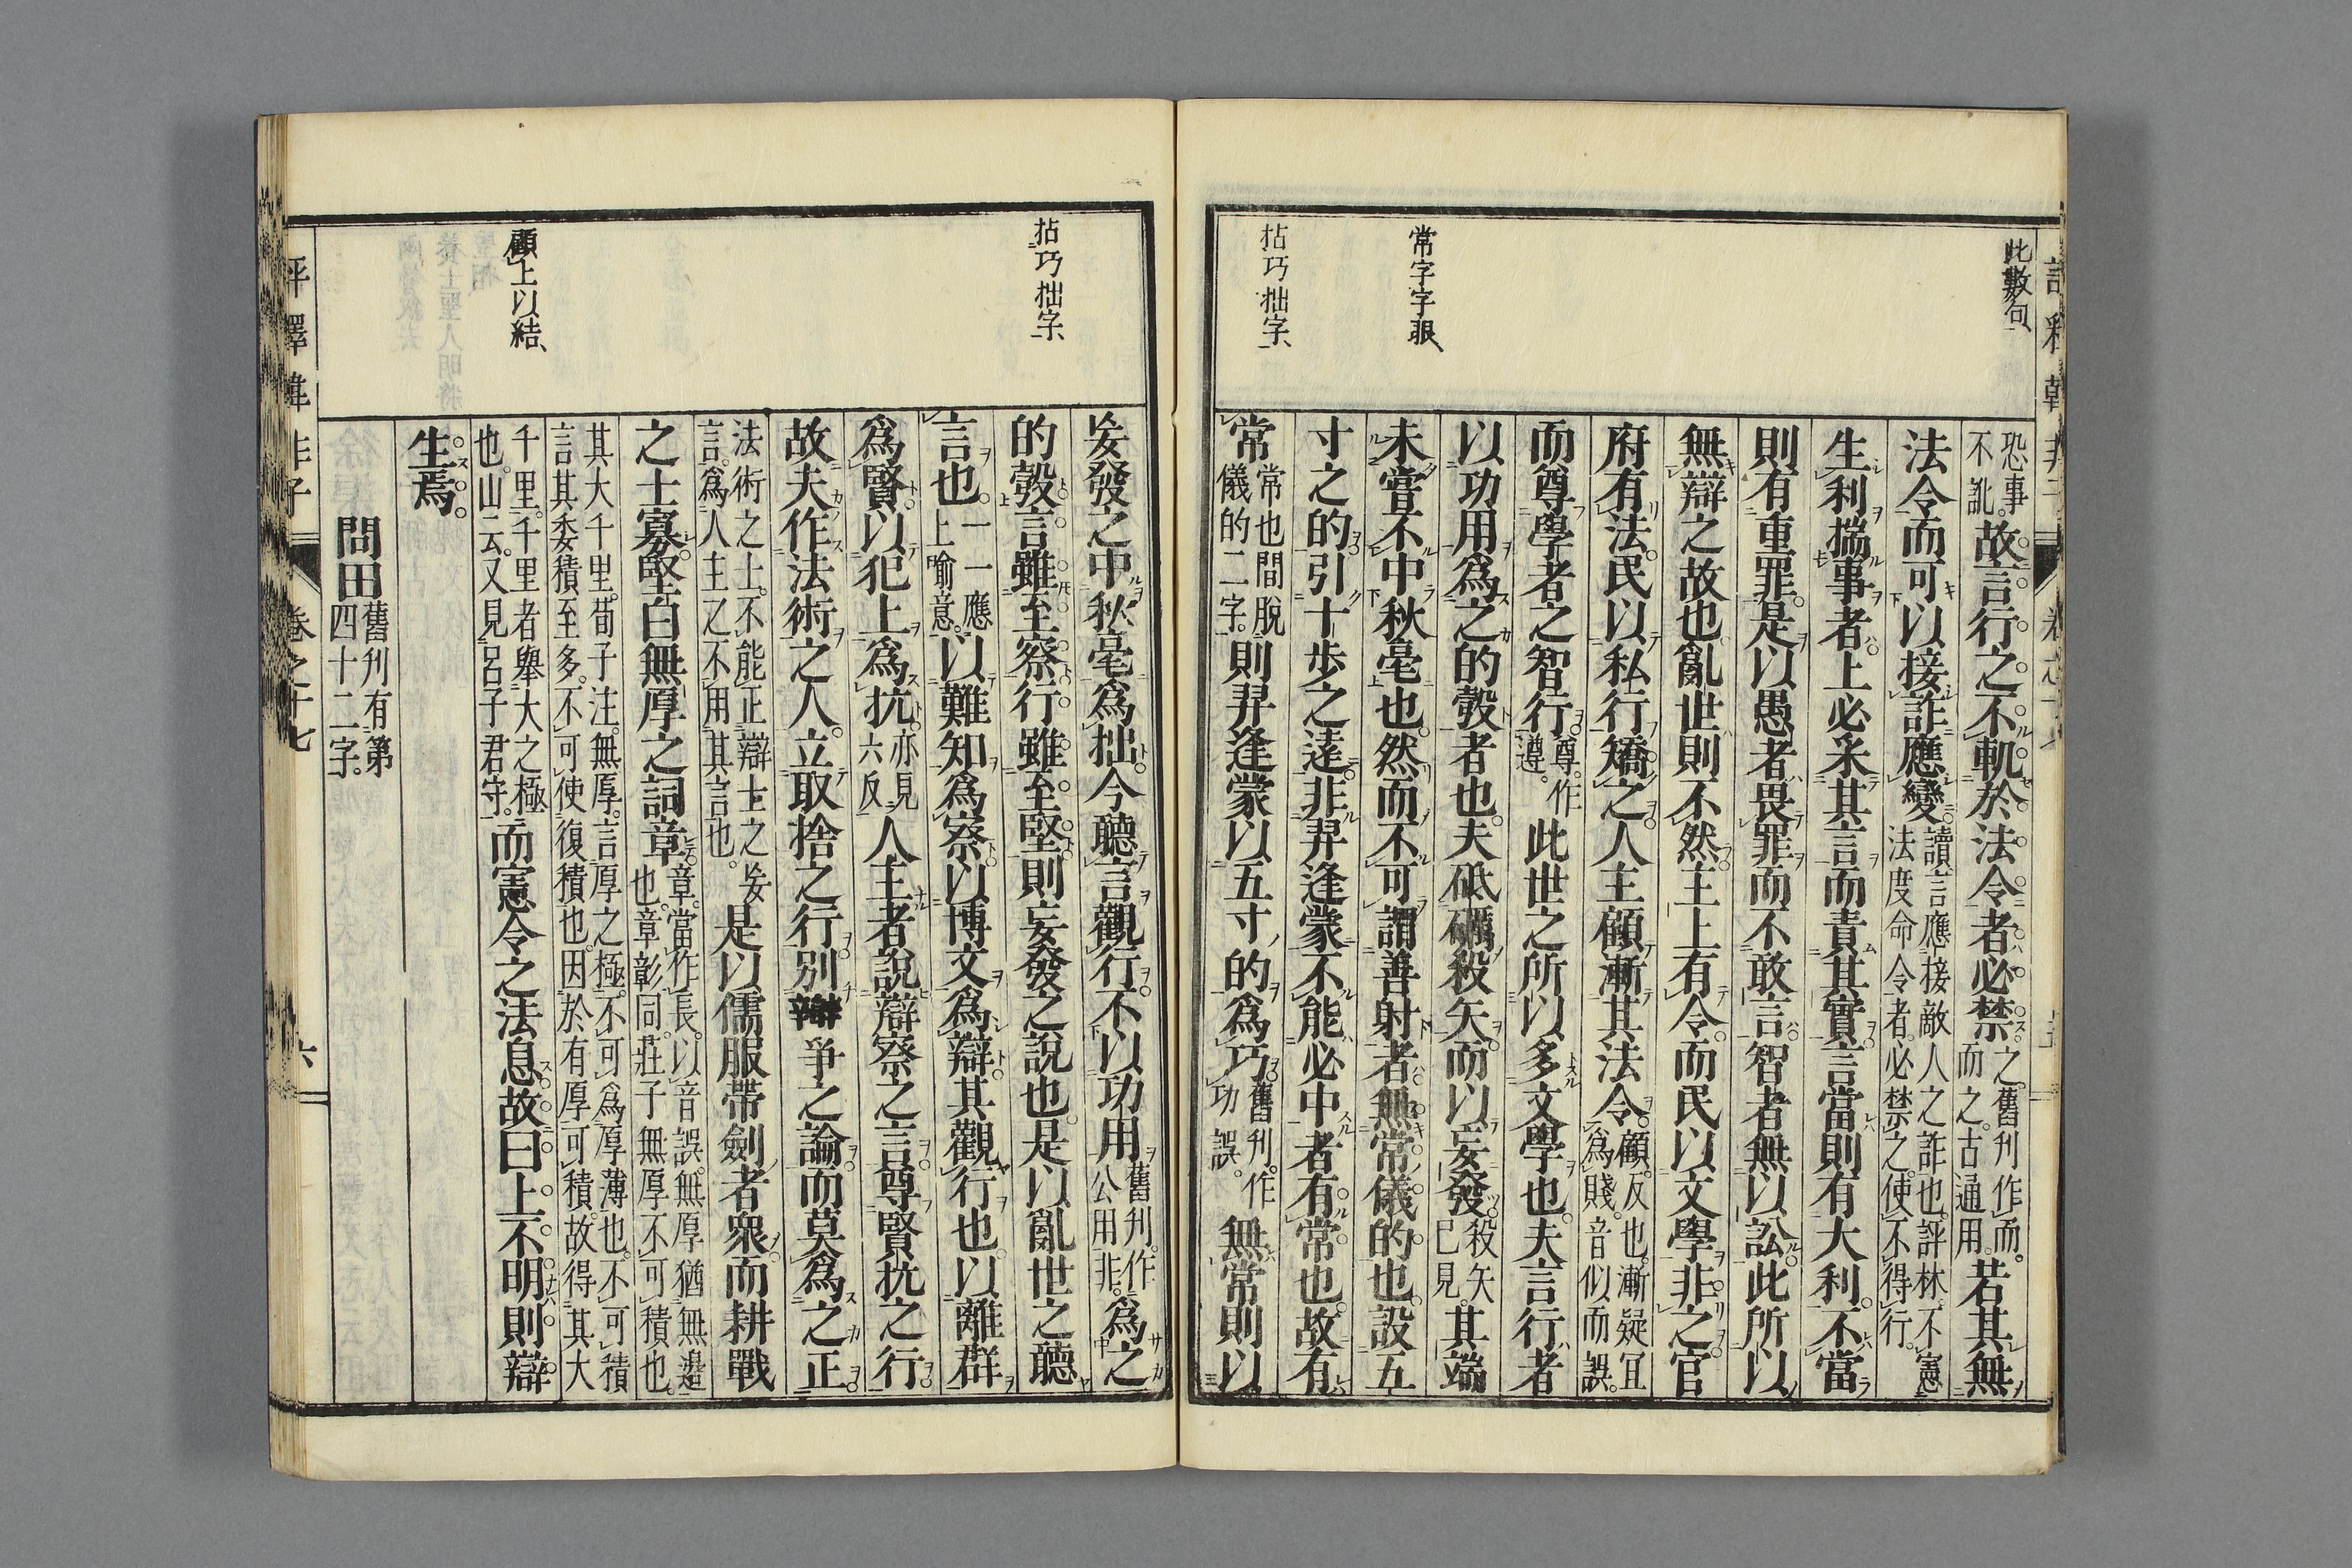 此數句、
常字字眼、
拈巧拙字、
恐事不訛。故言行之不軌於法令者必禁之。舊刋作而。而之。古通用。若其無
法令而可以接詐應變讀言應接敵人之詐也。評林、不憲法度命令者。必禁之。使不得行。
生利揣事者上必釆其言而責其實言當則有大利不當
則有重罪是以愚者畏罪而不敢言智者無以訟此所以
無辯之故也亂世則不然主上有令而民以文學非之官
府有法民以私行矯之人主顧漸其法令顧。反也。漸疑宜爲賤。音似而誤。
而尊學者之智行尊。作遵。此世之所以多文學也夫言行者
以功用爲之的彀者也夫砥礪殺矢而以妄發殺矢已見。其端
未嘗不中秋毫也然而不可謂善射者無常儀的也設五
寸之的引十步之遠非羿逢蒙不能必中者有常也故有
常常也間脫儀的二字。則羿逢蒙以五寸的爲巧舊刋。作功誤。無常則以
拈巧拙字、
顧上以結、
妄發之中秋毫爲拙今聽言觀行不以功用舊刋。作公用非。爲之
的彀言雖至察行雖至堅則妄發之說也是以亂世之聽
言也一一應上喻意。以難知爲察以博文爲辯其觀行也以離群
爲賢以犯上爲抗亦見六反人主者說辯察之言尊賢抗之行
故夫作法術之人立取捨之行別辯爭之論而莫爲之正
法術之士。不能正辯士之妄言。爲人主之不用其言也。是以儒服帶劍者衆而耕戰
之士寡堅白無厚之詞章章。當作長。以音誤。無厚猶無邊也。章彰同。莊子無厚不可積也。
其大千里。荀子注。無厚。言厚之極。不可爲厚薄也。不可積言其委積至多。不可使復積也。因於有厚可積。故得其大
千里。千里者舉大之極也。山云。又見呂子君守。而憲令之法息故曰上不明則辯
生焉。
問田舊刋有第四十二字。
評釋韓非子　卷之十七　六